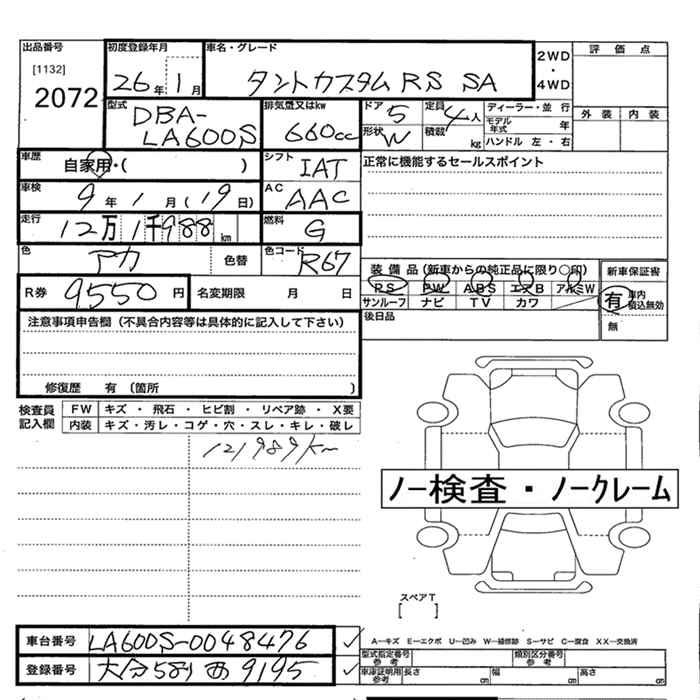 出品番号 初度登録年月 車名・グレード 評価点
[1132] 2072
26年1月 タントカスタム RS SA 2WD・4WD
外装 内装
型式 排気量又はkw ドア 定員 ディーラー・並行
DBA-LA600S 660cc 5 4人 モデル年式 年
形状 W 積載 kg ハンドル 左・右
車歴 自家用・( ) シフト IAT 正常に機能するセールスポイント
車検 9年1月(19日) AC AAC
走行 12万1千988km 燃料 G
色 アカ 色替 色コード R67
装備品(新車からの純正品に限り○印) 新車保証書
RS PW ABS エアB アルミW 有 車内積込無効
サンルーフ ナビ TV カワ
R券 9550円 名変期限 月 日 後日品 無
注意事項申告欄(不具合内容等は具体的に記入して下さい)
修復歴 有(箇所 )
検査員記入欄 FW キズ・飛石・ヒビ割・リペア跡・X要
内装 キズ・汚レ・コゲ・穴・スレ・キレ・破レ
121989km
ノー検査・ノークレーム
スペアT
[ ]
車台番号 LA600S-0048476
A−キズ E−エクボ U−凹み W−補修跡 S−サビ C−腐食 XX−交換済
型式指定番号 参考 類別区分番号 参考
登録番号 大分581 西 9195
車庫証明用参考 長さ cm 幅 cm 高さ cm